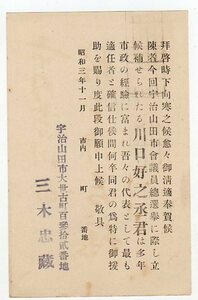 拝啓時下向寒之候愈々御清適奉賀候
陳者今回宇治山田市會議員總選擧に際し立
候補せられたる川口好之丞君は多年
市政の經驗に富まれ吾々の代表として最も
適任者と確信仕候間何卒同君の爲特に御援
助を賜り度此段御願申上候　敬具
昭和三年十一月　市内　町　番地
宇治山田市大世古町百參拾貳番地
三木忠藏